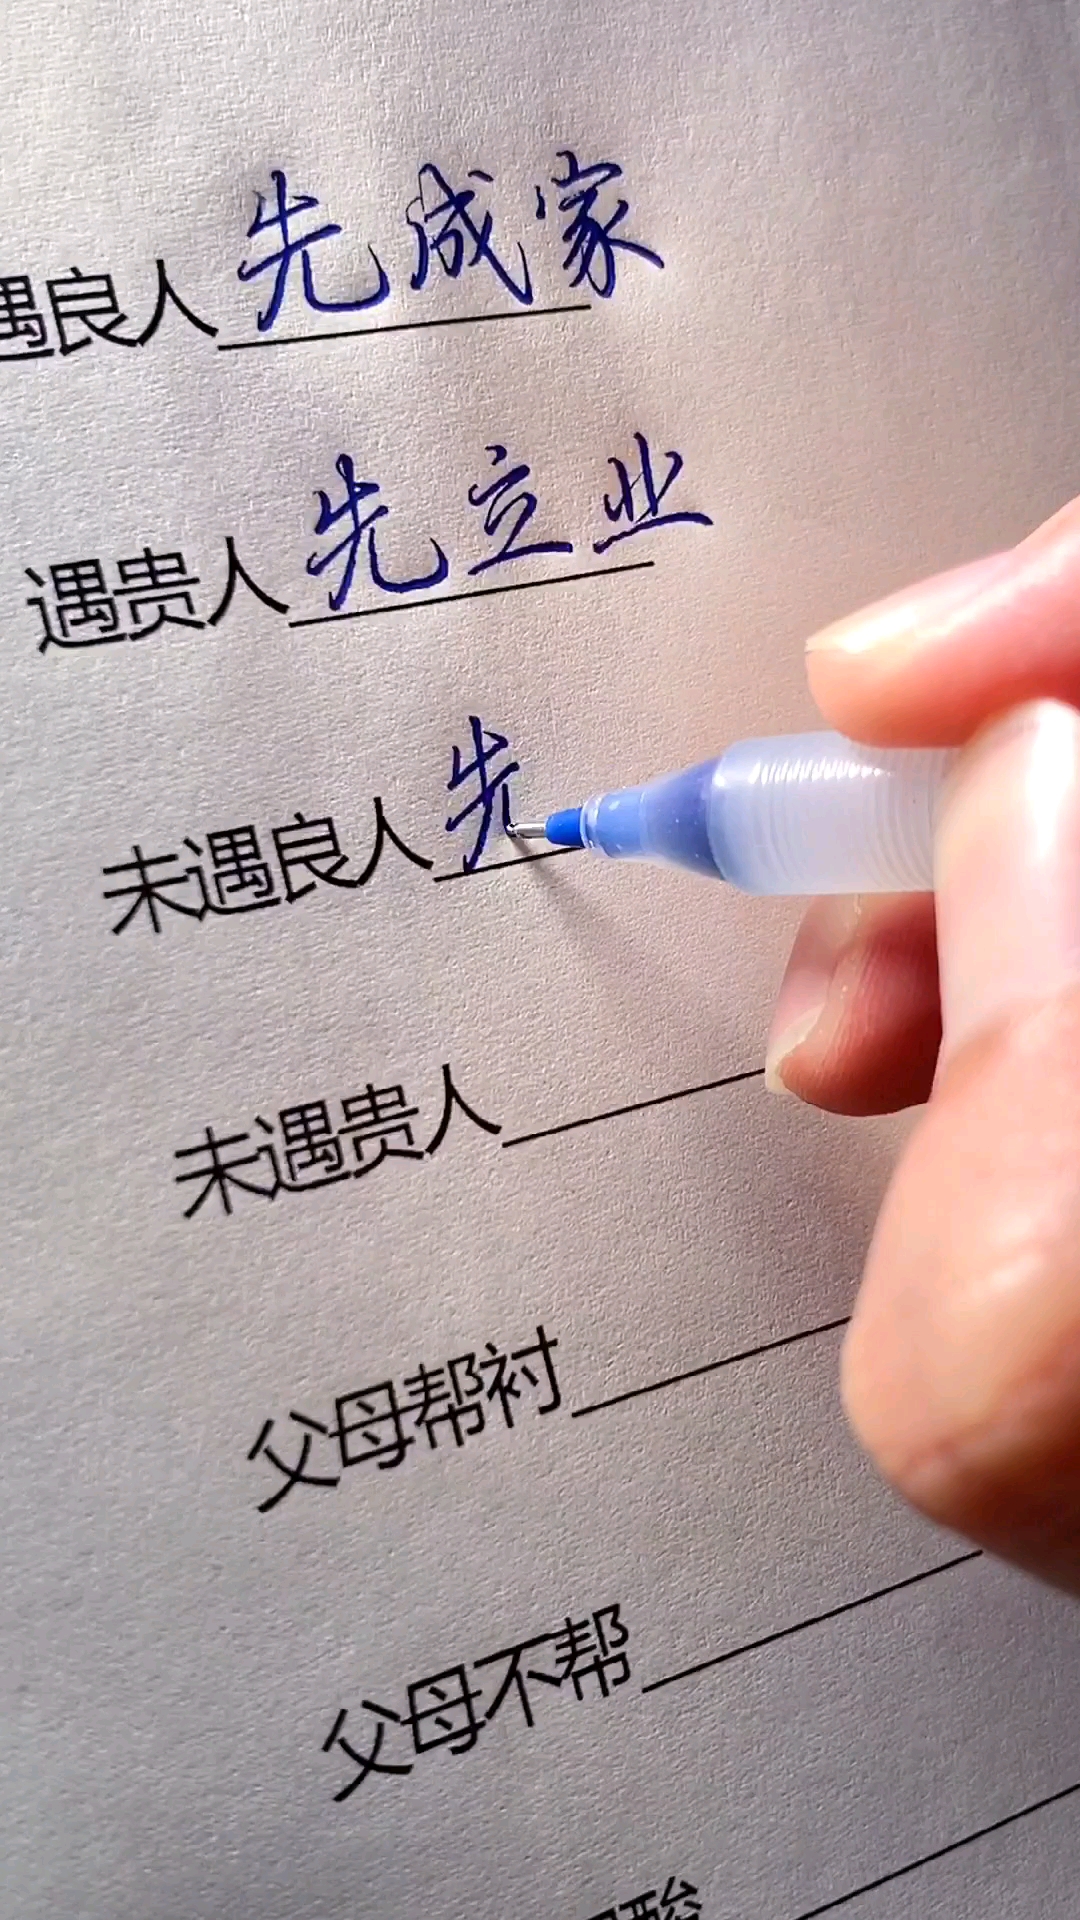 遇良人先成家
遇贵人先立业
未遇良人先
未遇贵人
父母帮衬
父母不帮